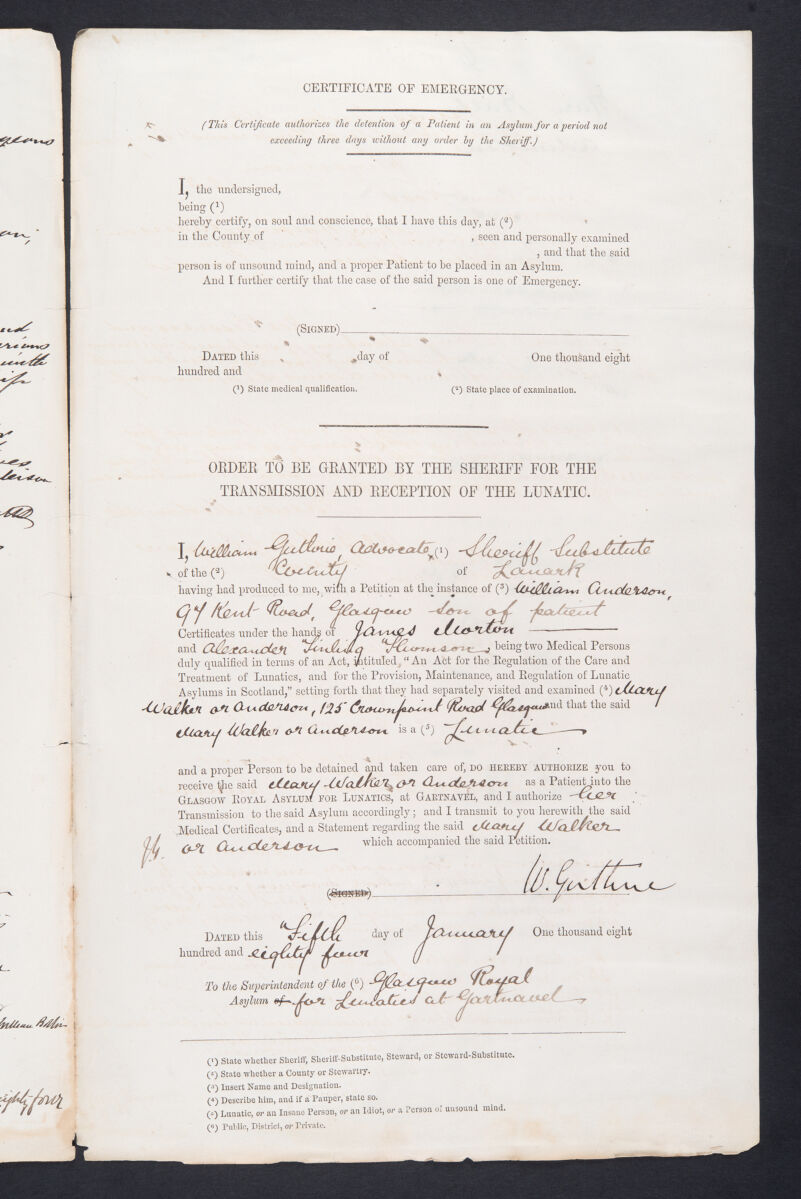 CERTIFICATE OF EMERGENCY.
(This Certificate authorizes the detention of a Patient in an Asylum for a period not
exceeding three days without any order by the Sheriff.)
I, the undersigned,
being (1)
hereby certify, on soul and conscience, that I have this day, at (2)
in the County of , seen and personally examined
, and that the said
person is of unsound mind, and a proper Patient to be placed in an Asylum.
And I further certify that the case of the said person is one of Emergency.
(SIGNED)
DATED this day of One thousand eight
hundred and
(1) State medical qualification. (2) State place of examination.
ORDER TO BE GRANTED BY THE SHERIFF FOR THE
TRANSMISSION AND RECEPTION OF THE LUNATIC.
I, William Guthrie, Advocate, (1) Sheriff Substitute
of the (2) County of Lanark
having had produced to me, with a Petition at the instance of (3) William Anderson,
97 Kent Road, Glasgow son of patient
Certificates under the hands of James Morton
and Alexander Thomson, being two Medical Persons
duly qualified in terms of an Act, intituled, "An Act for the Regulation of the Care and
Treatment of Lunatics, and for the Provision, Maintenance, and Regulation of Lunatic
Asylums in Scotland," setting forth that they had separately visited and examined (4) Mary
Walker or Anderson, 125 Crownpoint Road Glasgow and that the said
Mary Walker or Anderson is a (5) Lunatic
and a proper Person to be detained and taken care of, DO HEREBY AUTHORIZE you to
receive the said Mary Walker or Anderson as a Patient into the
GLASGOW ROYAL ASYLUM FOR LUNATICS, AT GARTNAVEL, and I authorize her
Transmission to the said Asylum accordingly; and I transmit to you herewith the said
Medical Certificates, and a Statement regarding the said Mary Walker
or Anderson which accompanied the said Petition.
(SIGNED) W. Guthrie
DATED this Fifth day of January One thousand eight
hundred and eighty four
To the Superintendent of the (6) Glasgow Royal
Asylum of for Lunatics at Gartnavel
(1) State whether Sheriff, Sheriff-Substitute, Steward, or Steward-Substitute.
(2) State whether a County or Stewartry.
(3) Insert Name and Designation.
(4) Describe him, and if a Pauper, state so.
(5) Lunatic, or an Insane Person, or an Idiot, or a Person of unsound mind.
(6) Public, District, or Private.